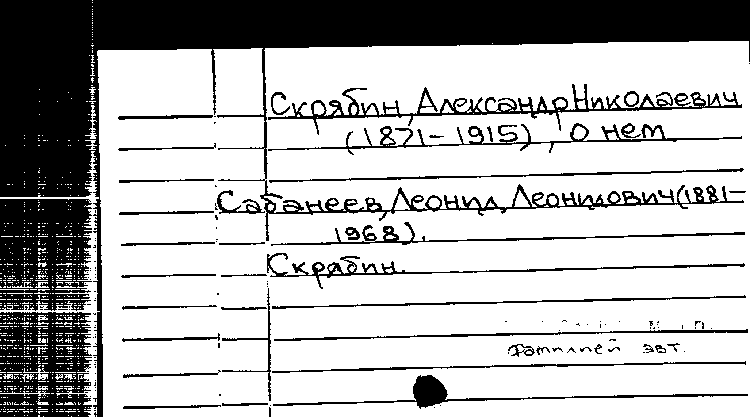 Скрябин, Александр Николаевич
(1871-1915), о нем
Сабанеев, Леонид Леонидович (1881-
1968).
Скрябин.
фамилией авт.